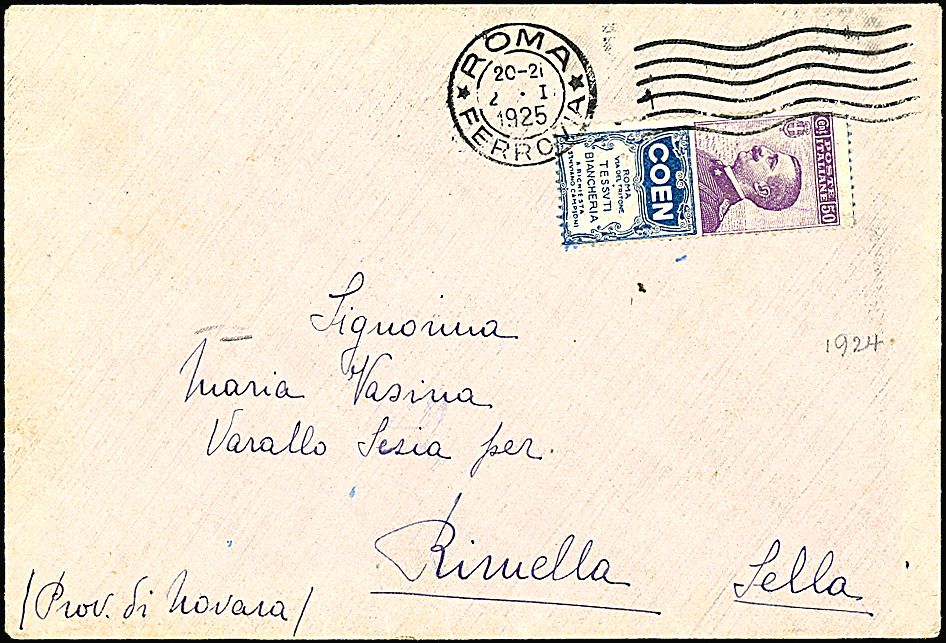 ROMA
20-21
2 · I
1925
FERROVIA
CENT. 50
POSTE ITALIANE
COEN
ROMA
VIA DEL TRITONE
TESSVTI
BIANCHERIA
A RICHIESTA
SI INVIANO CAMPIONI
Signorina
Maria Vasina
Varallo Sesia per
Rimella Sella
/Prov. di Novara/
1924